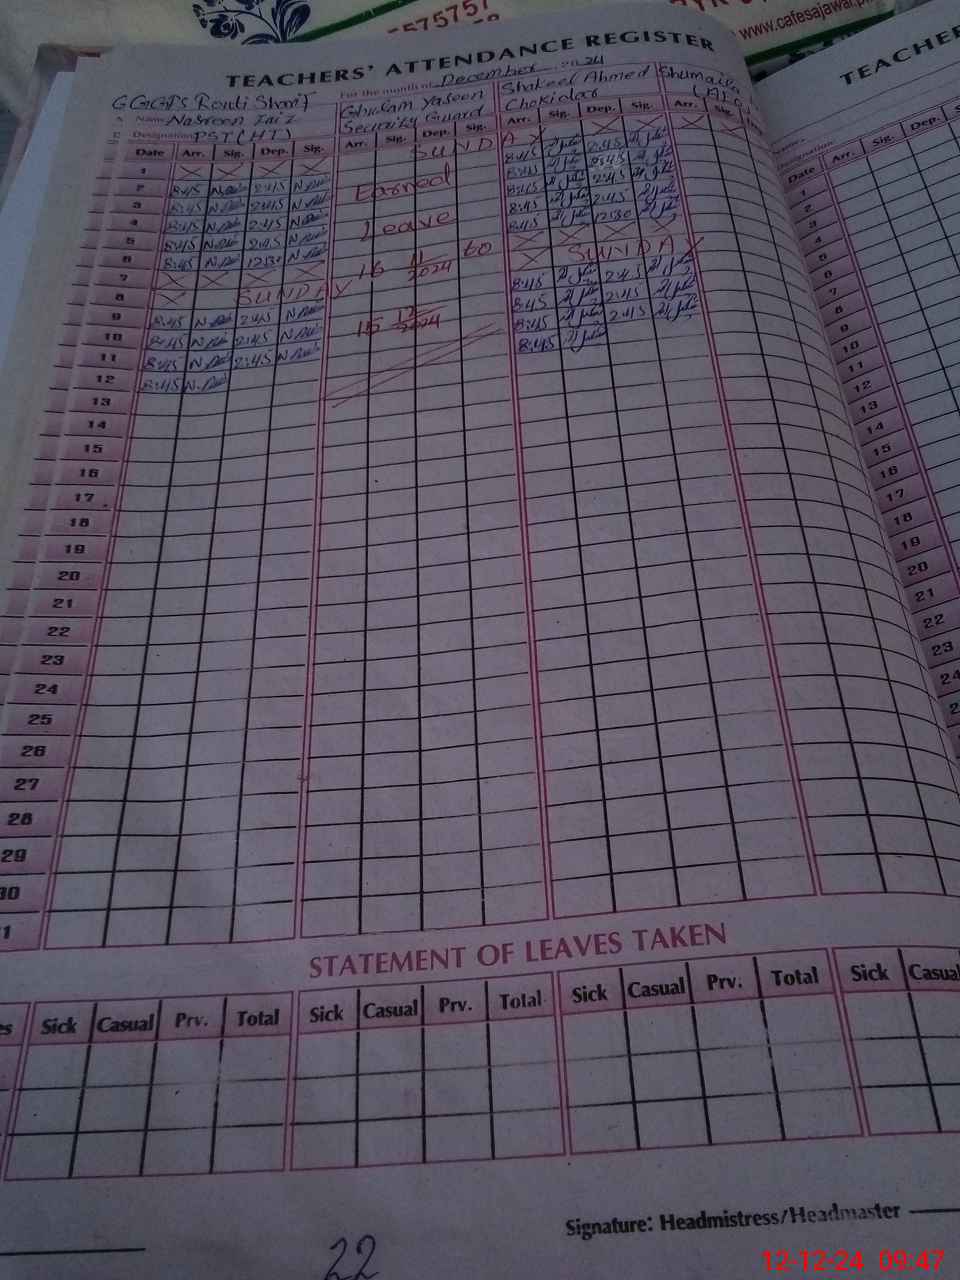 575757
www.cafesajawal.p
TEACHERS' ATTENDANCE REGISTER
TEACHE
For the month of December 2024
GGGPS Ronti Sharif
Name Nasreen Faiz
Ghulam Yaseen
Shakeel Ahmed
Shumaila
Designation PST(HT)
Security Guard
Chokidar
Date Arr. Sig. Dep. Sig. Arr. Sig. Dep. Sig. Arr. Sig. Dep. Sig. Arr. Sig.
Date Arr. Sig. Dep.
1 X X X X SUNDAY X X X X
2 8:45 2:45 8:45 2:45
3 8:45 2:45 Earned 8:45 2:45
4 8:45 2:45 8:45 2:45
5 8:45 2:45 Leave 8:45 2:45
6 8:45 12:30 8:45 12:30
7 X X X X 16 11/2024 to X X X X
8 X SUNDAY X SUNDAY
9 8:45 2:45 8:45 2:45
10 8:45 2:45 15 12/2024 8:45 2:45
11 8:45 2:45 8:45 2:45
12 8:45 8:45
13
14
15
16
17
18
19
20
21
22
23
24
25
26
27
28
29
30
1
1
2
3
4
5
6
7
8
9
10
11
12
13
14
15
16
17
18
19
20
21
22
23
24
STATEMENT OF LEAVES TAKEN
es Sick Casual Prv. Total Sick Casual Prv. Total Sick Casual Prv. Total Sick Casual
Signature: Headmistress/Headmaster
22
12-12-24 09:47